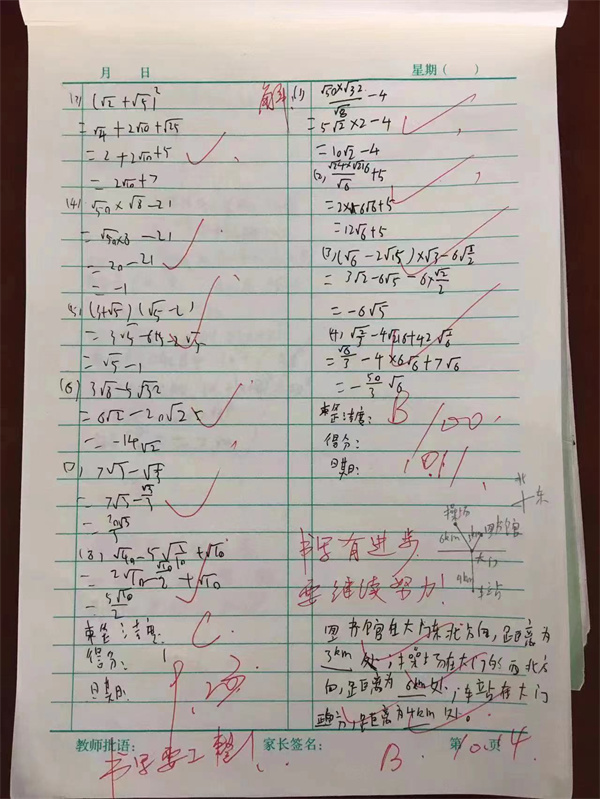 月 日
星期( )
(3) (√2+√5)²
=√4+2√10+√25
=2+2√10+5
=2√10+7
(4) √50×√8-21
=√50×8-21
=20-21
=-1
(3+√5)(√5-2)
=√5-1
(6) 3√8-5√32
=6√2-20√2
=-14√2
7√5-
=7√5-
(8) √40-5√1/10+√10
=2√10-√10/2+√10
=5√10/2
整洁度: C
得分:
日期: 9.23
(1) √50×√32/√8-4
=5√2×2-4
=10√2-4
(2) √24×√216/√6+5
=2×6√6+5
=12√6+5
(3) (√6-2√15)×√3-6√1/2
=3√2-6√5-6×√2/2
=-6√5
(4) -4√216+42√1/6
=√6/3-4×6√6+7√6
=-50/3√6
整洁度: B 100
得分:
日期: 10.11
北
东
操场
图书馆
6km
大门
4km
车站
书写有进步
要继续努力!
图书馆在大门东北方向,距离为
3km处;操场在大门的西北方
向,距离为6km处;车站在大门
距离为4km处。
教师批语:
家长签名:
第 页
书写要工整!
B 10.14